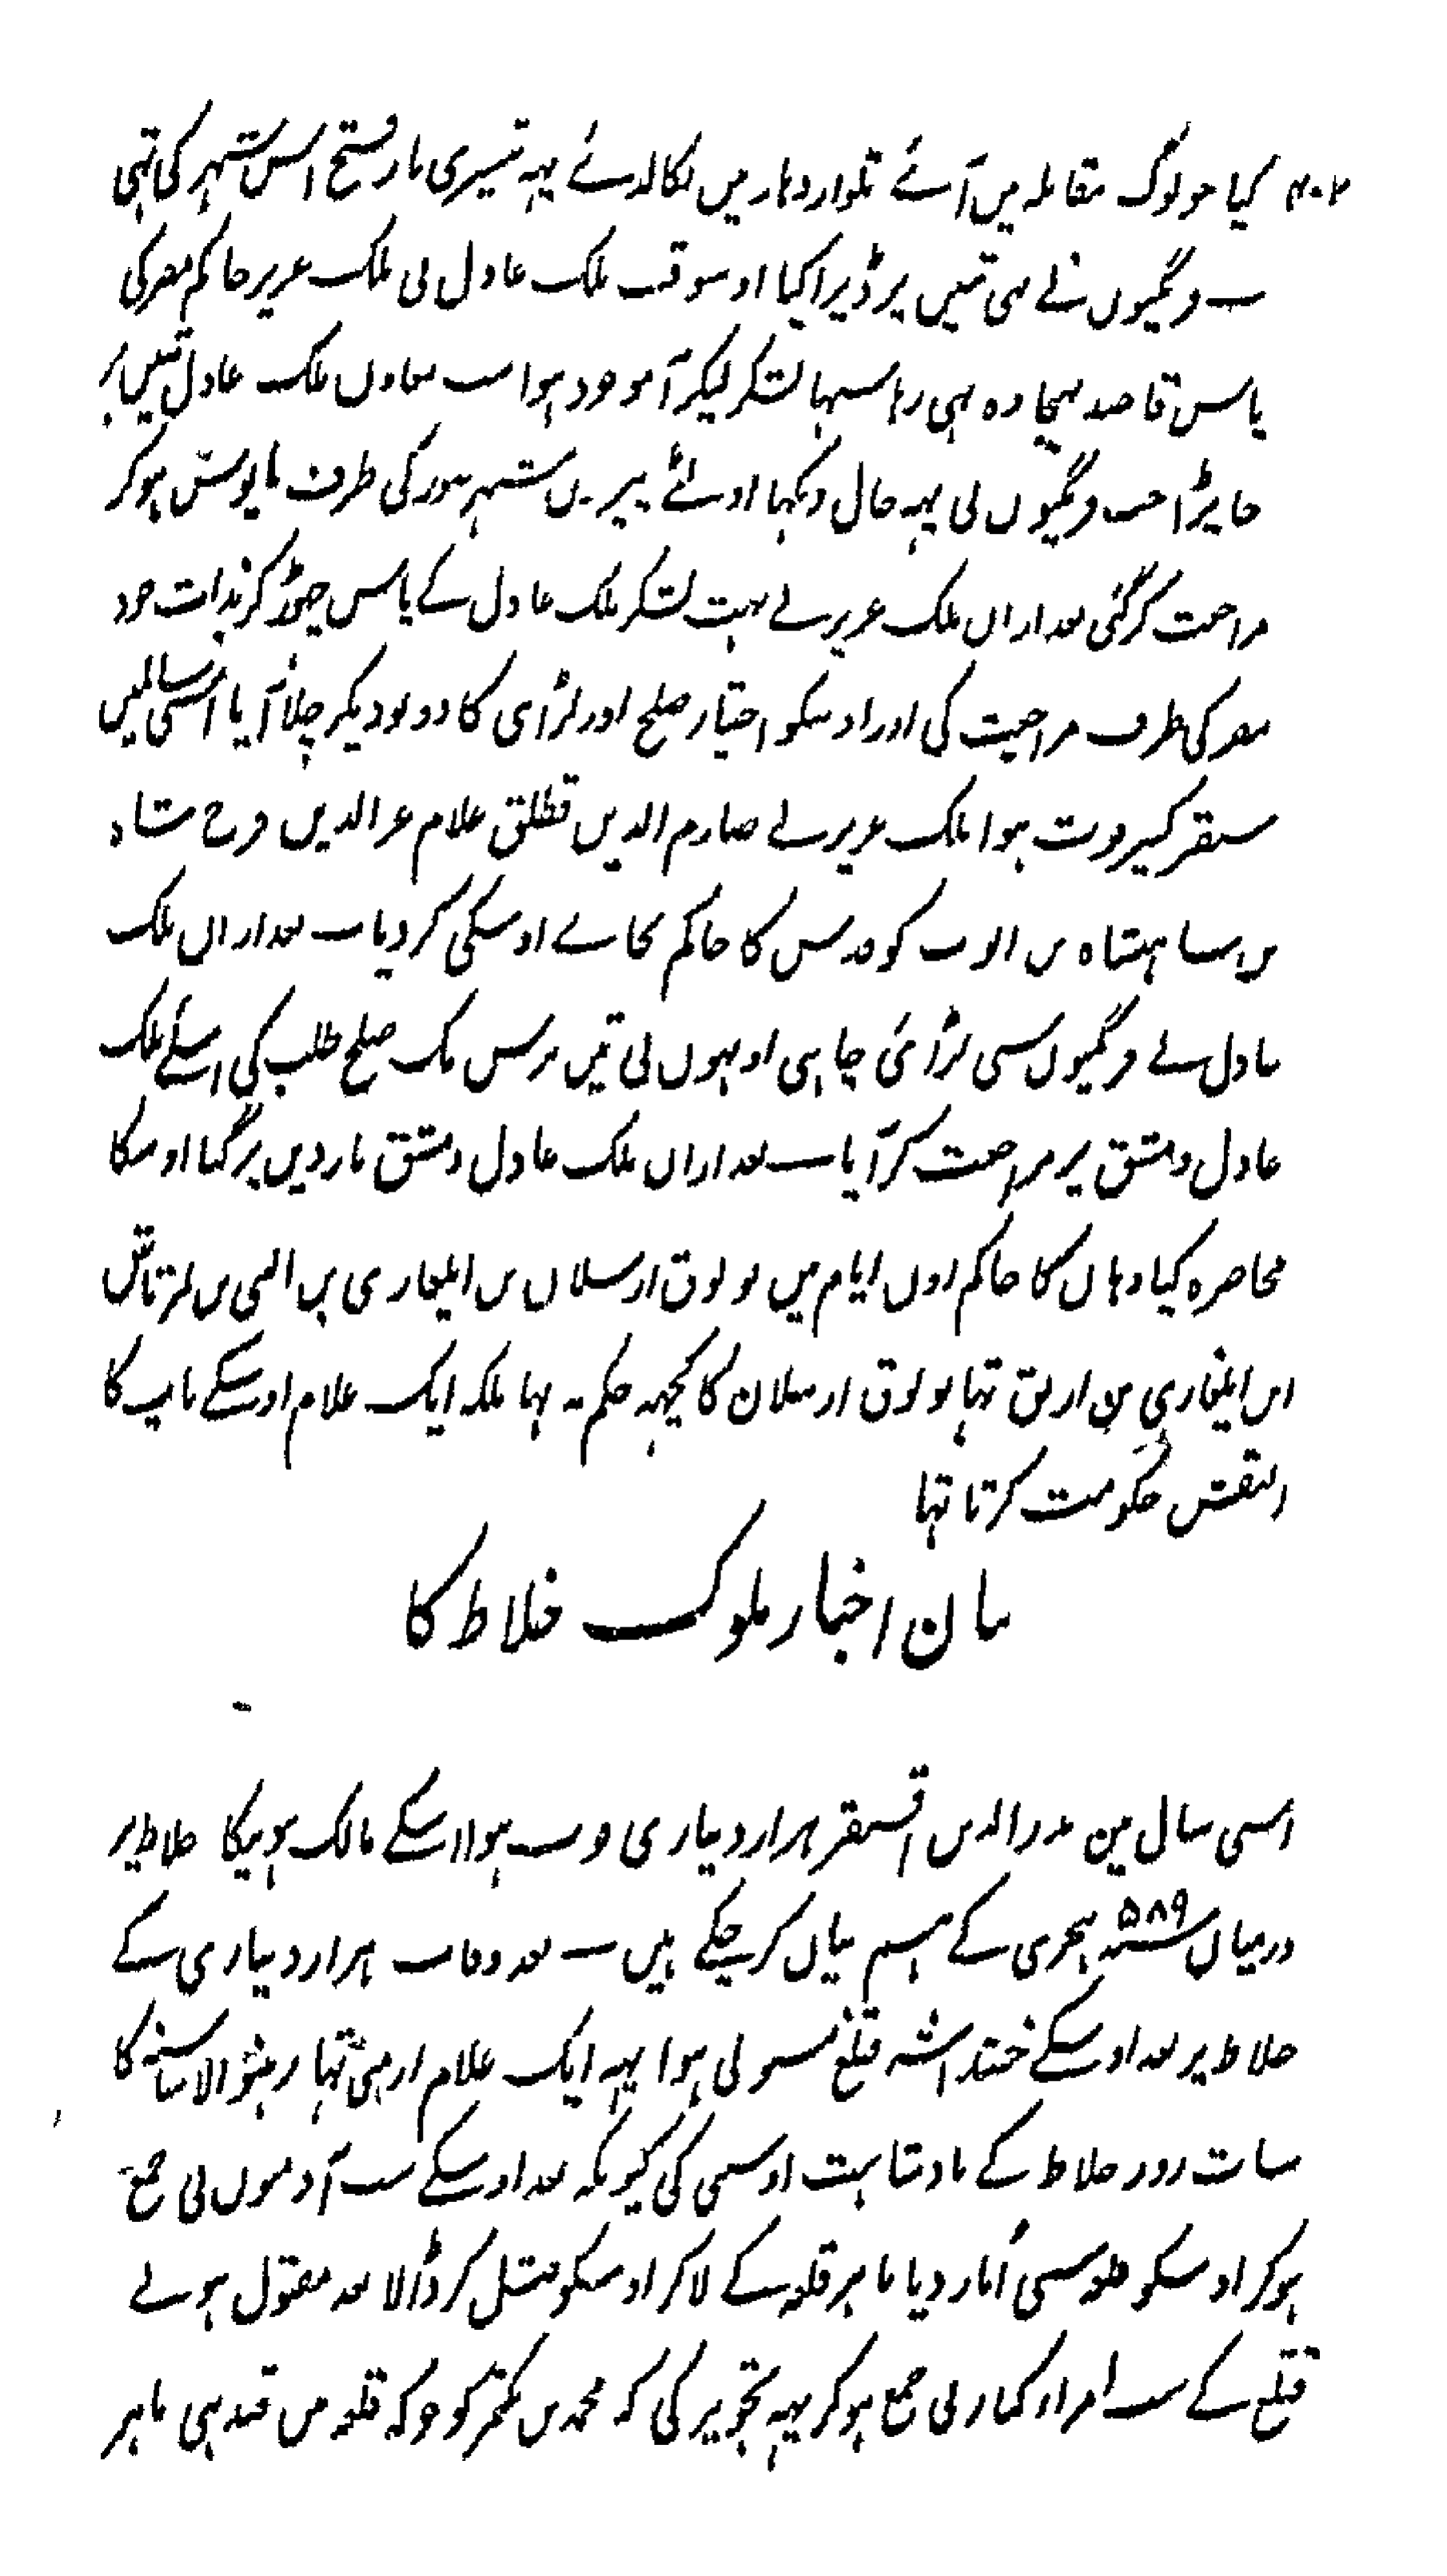 ۴۰۲ کیا جو لوگ مقابلہ میں آئے تلوار دہار میں نکالدئے یہہ تیسری بار فتح اس شہر کی تہی
فرنگیوں نے بہی تبنین پر ڈیرا کیا اوسوقت ملک عادل نی ملک عزیز حاکم مصر کی
پاس قاصد بہیجا وہ بہی رہا سہا لشکر لیکر آ موجود ہوا ملک عادل تبنین پر
جا پڑا جب فرنگیوں نی یہہ حال دیکہا اولٹے پیروں شہر صور کی طرف مایوس ہوکر
مراجعت کر گئی بعد ازاں ملک عزیز نے بہت لشکر ملک عادل کے پاس چہوڑ کر بذات خود
مصر کی طرف مراجعت کی اور اوسکو اختیار صلح اور لڑائی کا دیکر چلا آیا اسی سالمیں
سنقر کبیر فوت ہوا ملک عزیز نے صارم الدین قطلق غلام عز الدین فرح شاہ
بن شاہنشاہ بن ایوب کو قدس کا حاکم بجائے اوسکی کر دیا بعد ازاں ملک
عادل نے فرنگیوں سی لڑائی چاہی اونہوں نی تین برس تک صلح طلب کی اسلئے ملک
عادل دمشق پر مراجعت کر آیا بعد ازاں ملک عادل دمشق ماردین پر گیا اوسکا
محاصرہ کیا وہاں کا حاکم اون ایام میں بولوق ارسلان بن ایلغازی بن البی بن تمرتاش
ابن ایلغازی بن ارتق تہا بولوق ارسلان کا کچہہ حکم نہ تہا بلکہ ایک غلام اوسکے باپ کا
التقش حکومت کرتا تہا
بیان اخبار ملوک خلاط کا
اسی سال مین بدر الدین اقسنقر ہزار دیناری فوت ہوا اسکے مالک ہونیکا خلاط پر
درمیاں سنہ ۵۸۹ ہجری کے ہم بیاں کر چکے ہیں بعد وفات ہزار دیناری کے
خلاط پر بعد اوسکے قتلغ متولی ہوا یہہ ایک غلام ارمنی تہا رہنے والا کا
سات روز خلاط کے بادشاہت اوسی کی کیونکہ بعد اوسکے سب آدمیوں نی جمع
ہوکر اوسکو قلعہ سی اُتار دیا باہر قلعہ کے لاکر اوسکو قتل کر ڈالا بعد مقتول ہونے
قتلغ کے سب امراء کبار نی جمع ہوکر یہہ تجویز کی کہ محمد بن بکتمر کو جو کہ قلعہ میں قید ہی باہر